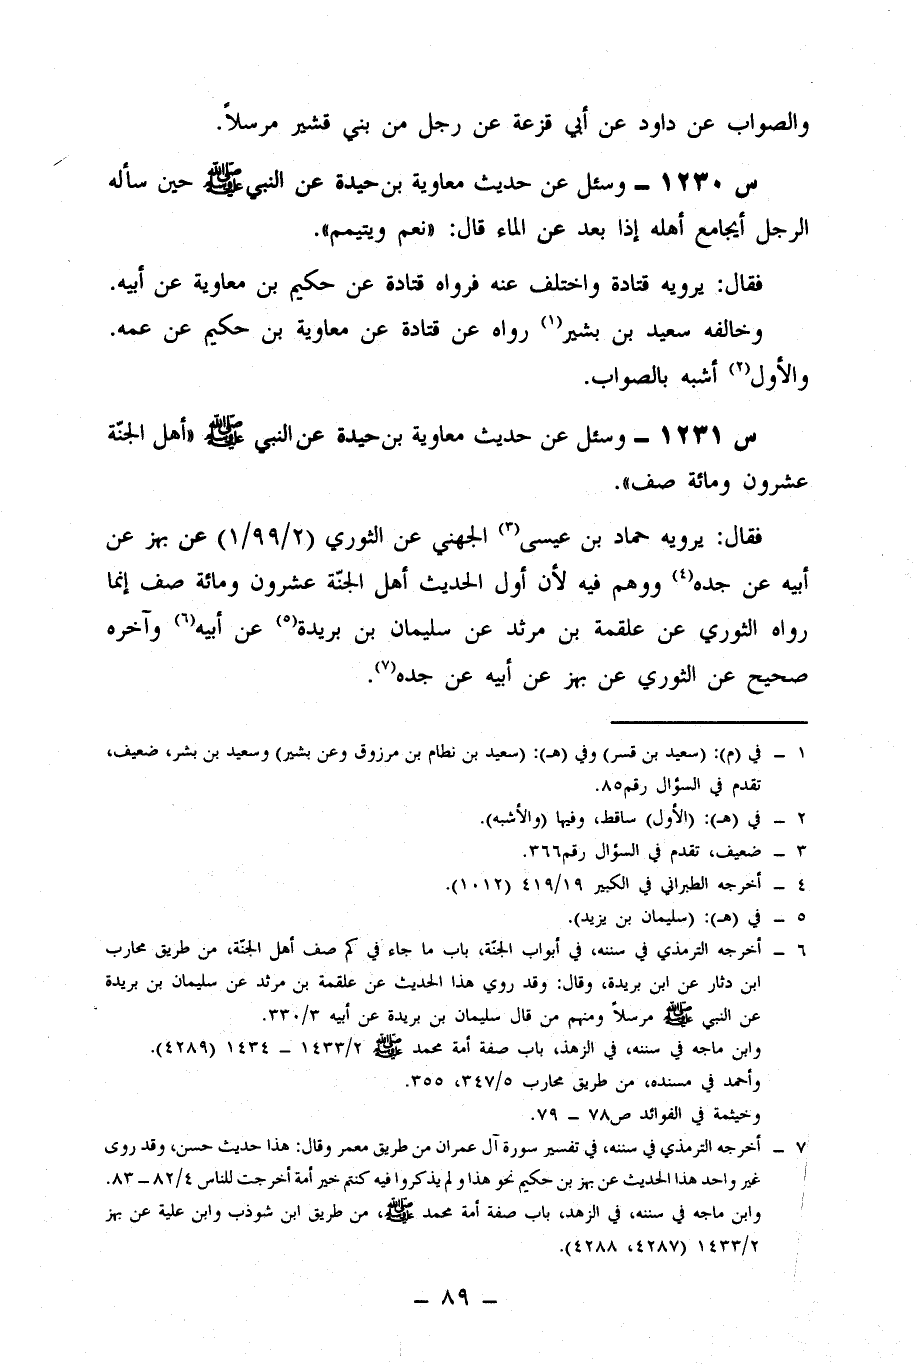 والصواب عن داود عن أبي قزعة عن رجل من بني قشير مرسلاً.
س ١٢٣٠ ـ وسئل عن حديث معاوية بن حيدة عن النبي ﷺ حين سأله
الرجل أيجامع أهله إذا بعد عن الماء قال: «نعم ويتيمم».
فقال: يرويه قتادة واختلف عنه فرواه قتادة عن حكيم بن معاوية عن أبيه.
وخالفه سعيد بن بشير(١) رواه عن قتادة عن معاوية بن حكيم عن عمه.
والأول(٢) أشبه بالصواب.
س ١٢٣١ ـ وسئل عن حديث معاوية بن حيدة عن النبي ﷺ «أهل الجنّة
عشرون ومائة صف».
فقال: يرويه حماد بن عيسى(٣) الجهني عن الثوري (١/٩٩/٢) عن بهز عن
أبيه عن جده(٤) ووهم فيه لأن أول الحديث أهل الجنّة عشرون ومائة صف إنما
رواه الثوري عن علقمة بن مرثد عن سليمان بن بريدة(٥) عن أبيه(٦) وآخره
صحيح عن الثوري عن بهز عن أبيه عن جده(٧).
١ ـ في (م): (سعيد بن قسر) وفي (هـ): (سعيد بن نطام بن مرزوق وعن بشير) وسعيد بن بشر، ضعيف،
تقدم في السؤال رقم٨٥.
٢ ـ في (هـ): (الأول) ساقط، وفيها (والأشبه).
٣ ـ ضعيف، تقدم في السؤال رقم٣٦٦.
٤ ـ أخرجه الطبراني في الكبير ٤١٩/١٩ (١٠١٢).
٥ ـ في (هـ): (سليمان بن يزيد).
٦ ـ أخرجه الترمذي في سننه، في أبواب الجنّة، باب ما جاء في كم صف أهل الجنّة، من طريق محارب
ابن دثار عن ابن بريدة، وقال: وقد روي هذا الحديث عن علقمة بن مرثد عن سليمان بن بريدة
عن النبي ﷺ مرسلاً ومنهم من قال سليمان بن بريدة عن أبيه ٣٣٠/٣.
وابن ماجه في سننه، في الزهذ، باب صفة أمة محمد ﷺ ١٤٣٣/٢ ـ ١٤٣٤ (٤٢٨٩).
وأحمد في مسنده، من طريق محارب ٣٤٧/٥، ٣٥٥.
وخيثمة في الفوائد ص٧٨ ـ ٧٩.
٧ ـ أخرجه الترمذي في سننه، في تفسير سورة آل عمران من طريق معمر وقال: هذا حديث حسن، وقد روى
غير واحد هذا الحديث عن بهز بن حكيم نحو هذا ولم يذكروا فيه كنتم خير أمة أخرجت للناس ٨٢/٤ ـ ٨٣.
وابن ماجه في سننه، في الزهد، باب صفة أمة محمد ﷺ، من طريق ابن شوذب وابن علية عن بهز
١٤٣٣/٢ (٤٢٨٧، ٤٢٨٨).
ـ ٨٩ ـ